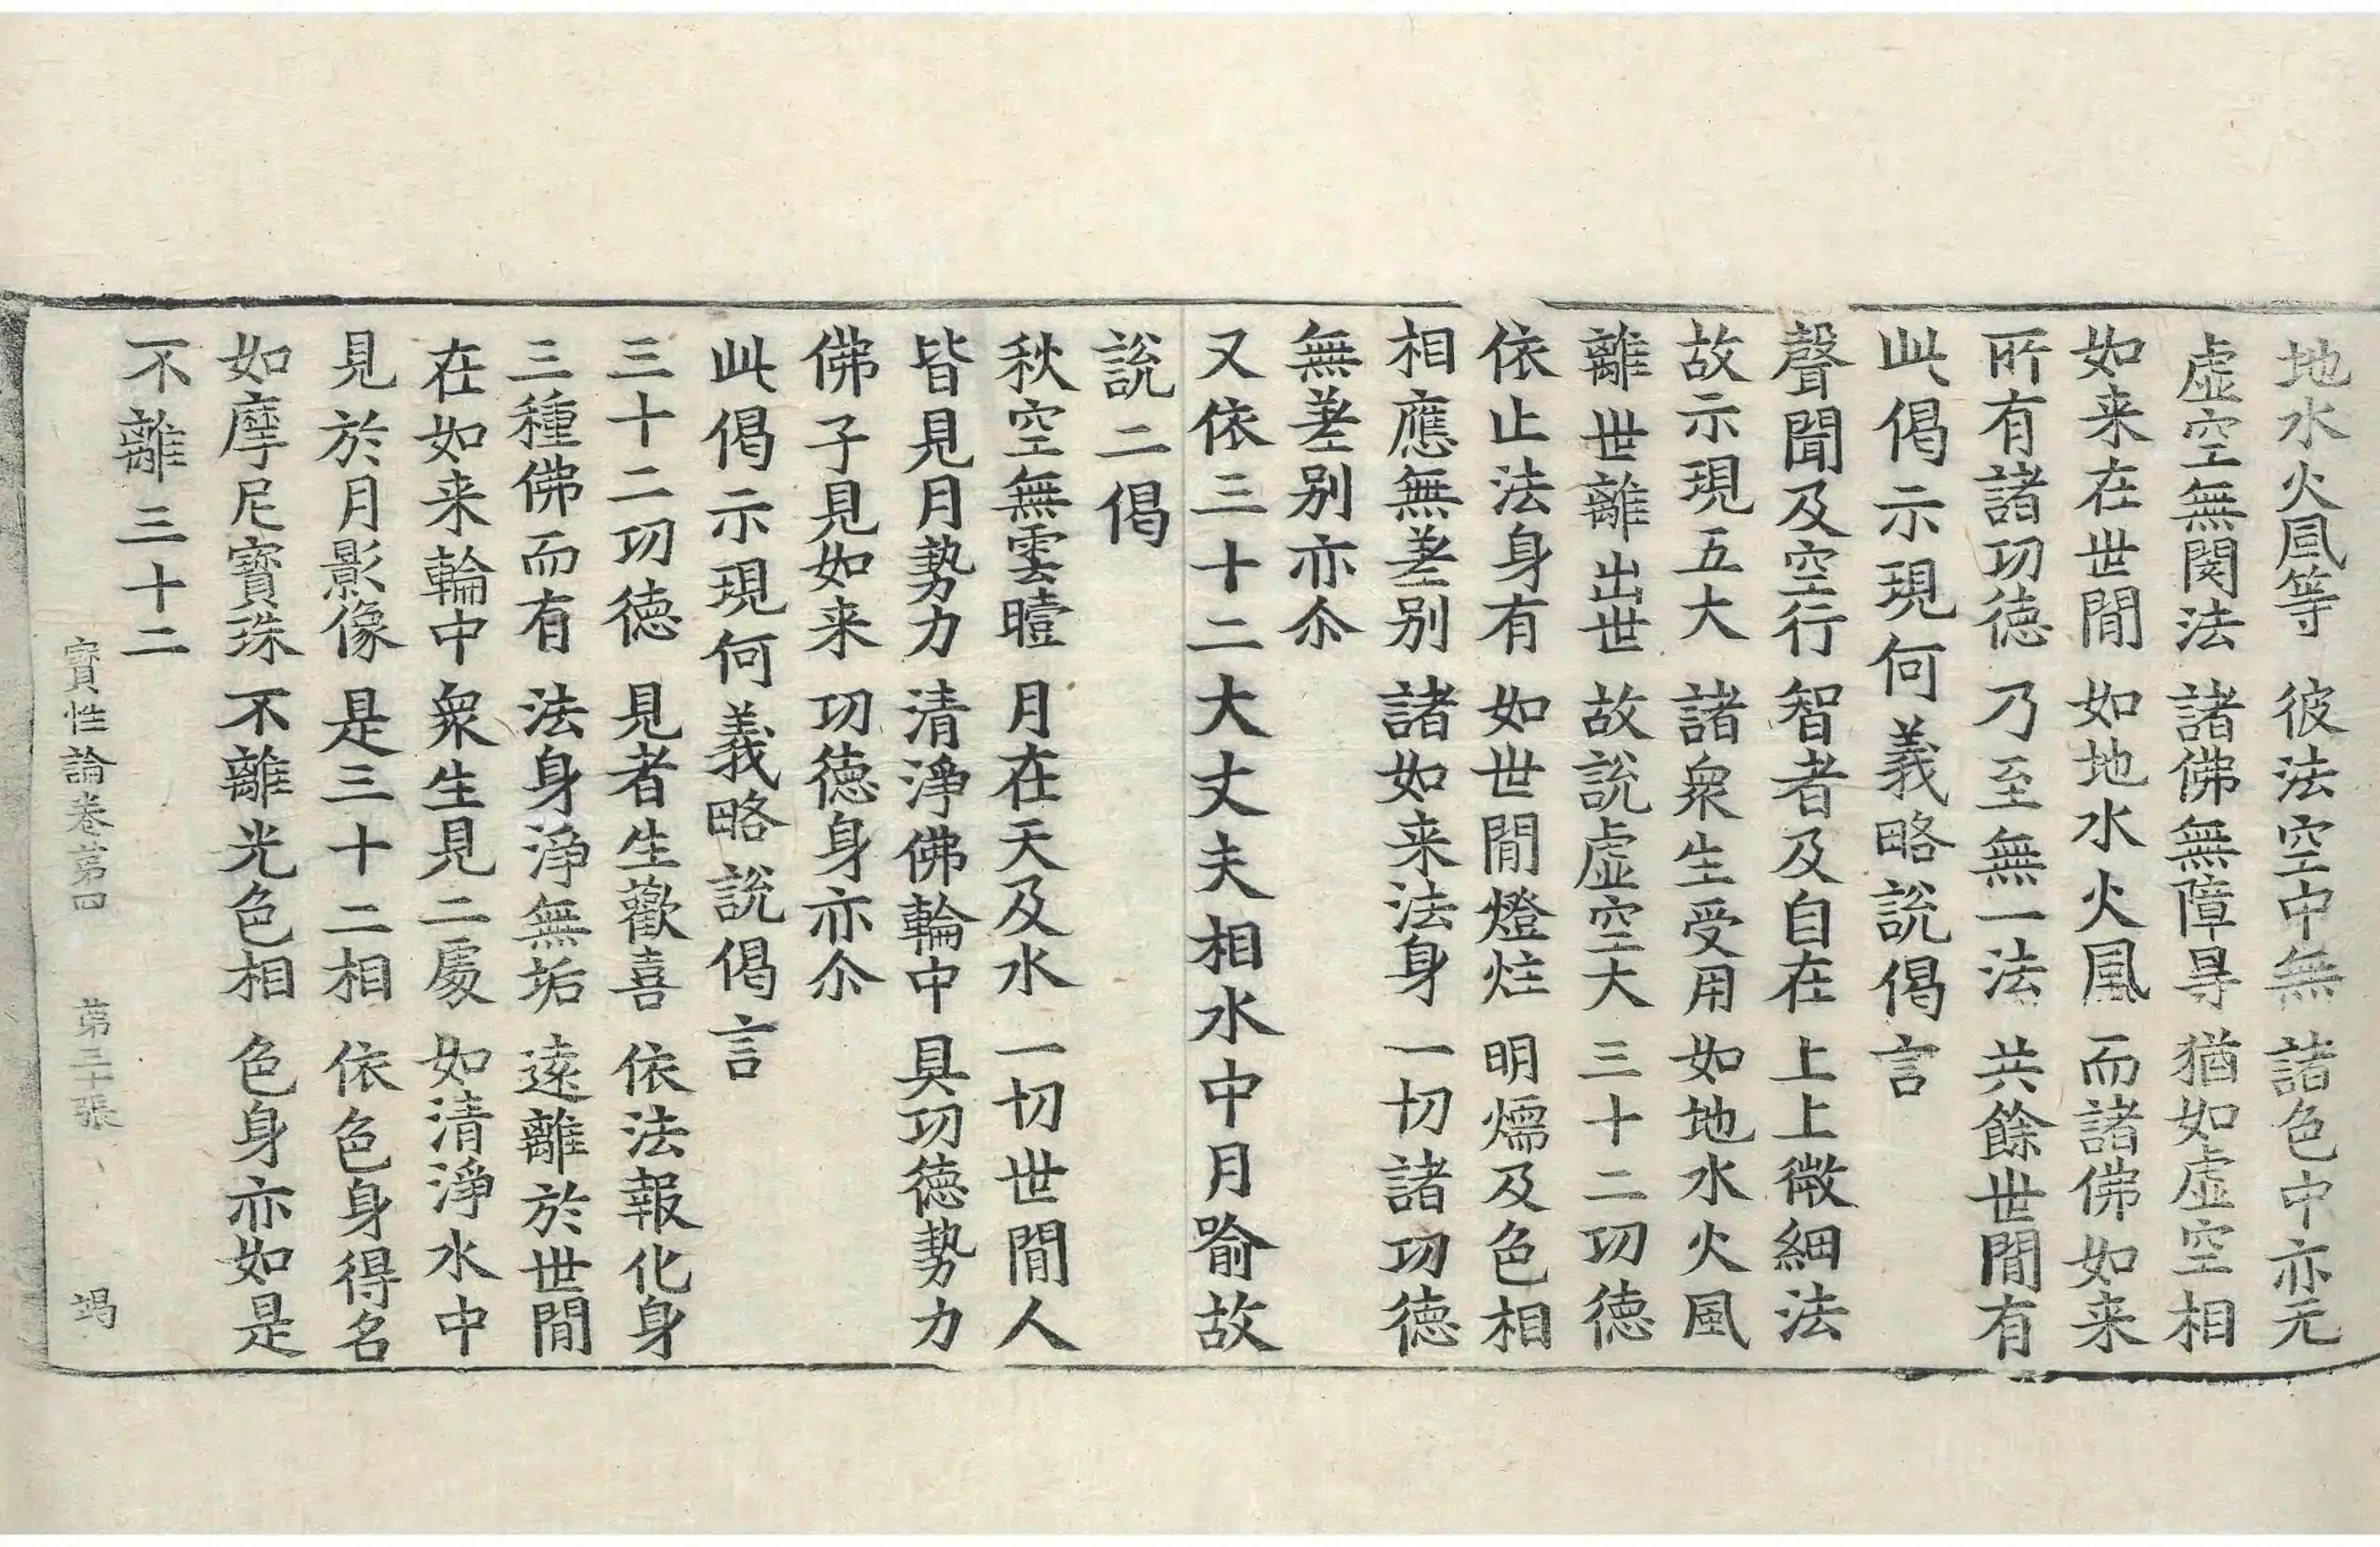 地水火風等　彼法空中無　諸色中亦无
虛空無閡法　諸佛無障㝵　猶如虛空相
如来在世閒　如地水火風　而諸佛如来
所有諸功徳　乃至無一法　共餘世閒有
此偈示現何義略說偈言
聲聞及空行　智者及自在　上上微細法
故示現五大　諸衆生受用　如地水火風
離世離出世　故說虛空大　三十二功徳
依止法身有　如世閒燈炷　明煗及色相
相應無差别　諸如来法身　一切諸功徳
無差别亦尒
又依三十二大丈夫相水中月喻故
說二偈
秋空無雲曀　月在天及水　一切世閒人
皆見月勢力　清淨佛輪中　具功徳勢力
佛子見如来　功徳身亦尒
此偈示現何義略說偈言
三十二功徳　見者生歡喜　依法報化身
三種佛而有　法身淨無垢　遠離於世閒
在如来輪中　衆生見二處　如清淨水中
見於月影像　是三十二相　依色身得名
如摩尼寶珠　不離光色相　色身亦如是
不離三十二
寶性論卷第四　第三十張　竭